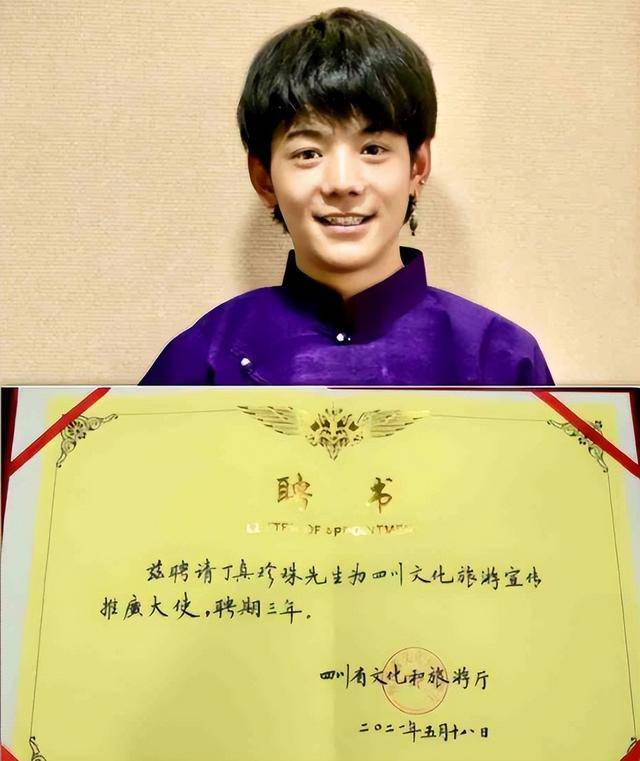 聘 书
LETTER OF APPOINTMENT
兹聘请丁真珍珠先生为四川文化旅游宣传
推广大使，聘期三年。
四川省文化和旅游厅
二〇二一年五月十八日